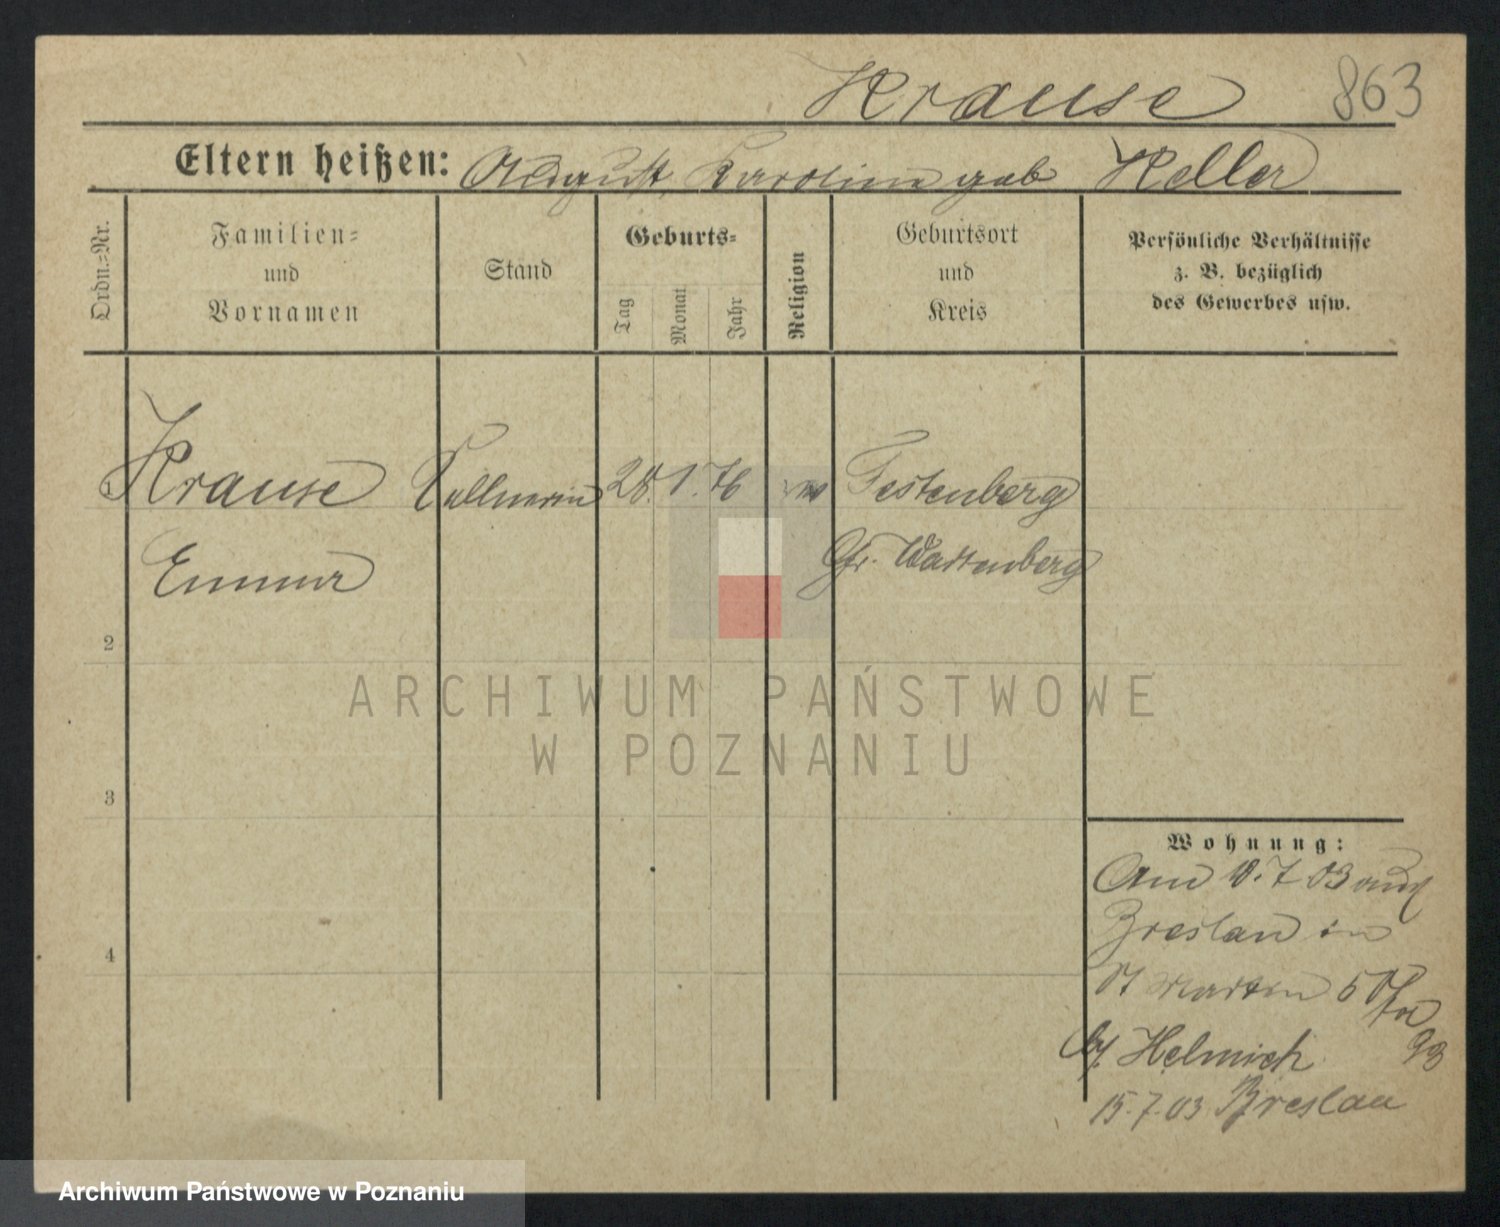 Krause 863
Eltern heißen: August, Karoline geb Heller
Ordn.-Nr.
Familien-
und
Vornamen
Stand
Geburts-
Tag
Monat
Jahr
Religion
Geburtsort
und
Kreis
Persönliche Verhältnisse
z. B. bezüglich
des Gewerbes usw.
Krause Kellnerin 28. 1. 76 ev Festenberg
Emma Gr. Wartenberg
2
3
4
Wohnung:
Am 10.7 03 aus
Breslau in
St Martin 5
bei Helmich
15.7.03 Breslau
ARCHIWUM PAŃSTWOWE
W POZNANIU
Archiwum Państwowe w Poznaniu